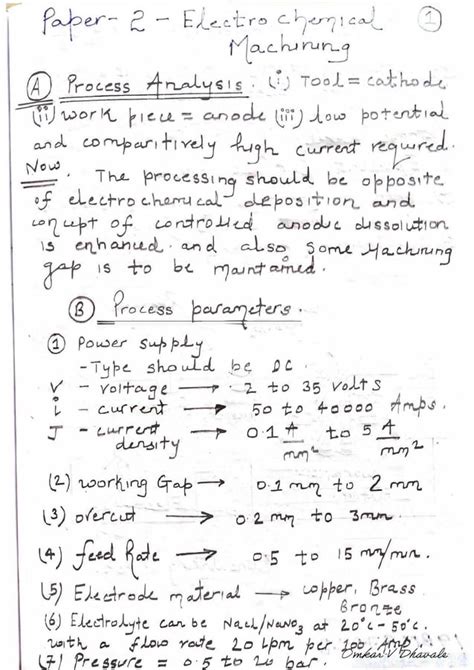 Paper-2 - Electrochemical ①
Machining
Ⓐ Process Analysis. (i) Tool = cathode
(ii) work piece = anode (iii) low potential
and comparitively high current required.
Now. The processing should be opposite
of electrochemical deposition and
concept of controlled anodic dissolution
is enhanced. and also some Machining
gap is to be maintained.
Ⓑ Process parameters.
① Power supply
-Type should be DC.
V - voltage → 2 to 35 volts
i - current → 50 to 40000 Amps.
J - current density → 0.1 A/mm² to 5 A/mm²
(2) working Gap → 0.1 mm to 2 mm
(3) overcut → 0.2 mm to 3mm.
(4) feed Rate → 0.5 to 15 mm/min.
(5) Electrode material → copper, Brass
Bronze
(6) Electrolyte can be NaCl/NaNO₃ at 20°C - 50°C.
with a flow rate 20 Lpm per 100 Amp.
(7) Pressure = 0.5 to 20 bar.
Omkar V Bhavale